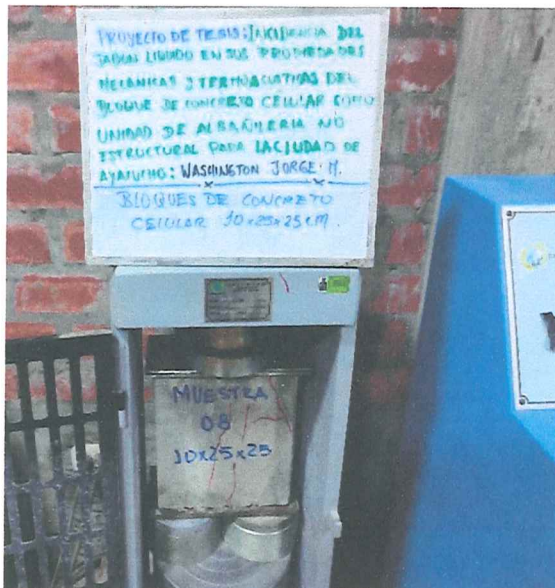 PROYECTO DE TESIS: INCIDENCIA DEL
JABON LIQUIDO EN SUS PROPIEDADES
MECANICAS Y TERMOACUSTICAS DEL
BLOQUE DE CONCRETO CELULAR COMO
UNIDAD DE ALBAÑILERIA NO
ESTRUCTURAL PARA LA CIUDAD DE
AYACUCHO: WASHINGTON JORGE. M.
BLOQUES DE CONCRETO
CELULAR 10x25x25 CM.
MUESTRA
08
10x25x25